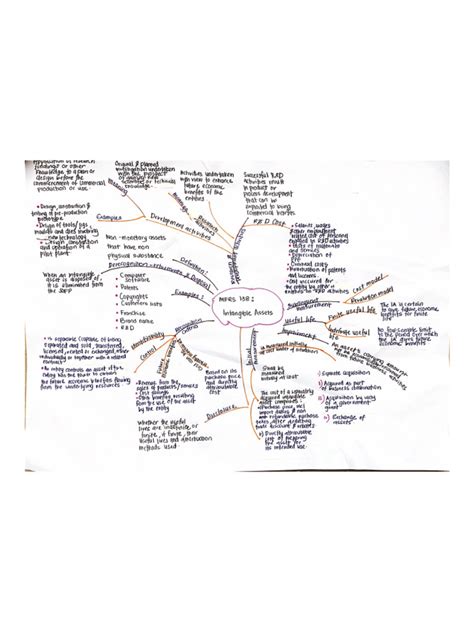 Application of research
findings or other
knowledge to a plan or
design before the
commencement of commercial
production or use.
Original & planned
investigation undertaken
with the prospect
of gaining new
scientific or technical
knowledge.
Activities undertaken
with view to enhance
future economic
benefits of the
entities
Successful R&D
activities result
in product or
process development
that can be
expected to bring
commercial benefits
Meaning
Meaning
Research
Development activities
Examples
• Design, construction &
testing of pre-production
prototype
• Design of tools, jigs,
moulds and dies involving
new technology
• Design, construction
and operation of a
pilot plant
Non-monetary assets
that have non
physical substance
Definition:
R & D Cost
• Salaries, wages
related cost of personnel
engaged in R&D activities
and services
• Depreciation of
PPE
• Overhead costs
• Amortisation of patents
and licenses
• Cost incurred for
entities to R&D activities
When an intangible
asset is disposed of,
it is eliminated from
the SOFP
Derecognition
Retirements & Disposal
Examples:
• Computer
Software
• Patents
• Copyrights
• Customers lists
• Franchise
• Brand name
• R&D
MFRS 138:
Intangible Assets
Subsequent
measurement
Cost model
Revaluation model
Useful life
Finite useful life
The IA is certain
to give future economic
benefits for finite
life
Indefinite useful life
No foreseeable limit
to the period over which
the IA gives future
economic benefits
Impairment
Recognition
criteria
Identifiability
Control
Future
Economic
Benefits
• Is separable (capable of being
separated and sold, transferred,
licensed, rented or exchanged, either
individually or together with a related
contract)
• An entity controls an asset if the
entity has the power to obtain
the future economic benefits flowing
from the underlying resources
• Revenue from the
sales of products/services
• Cost savings
• Other benefits resulting
from the use of the asset
by the entity
Based on its
purchase price
and directly
attributable
cost
Initial
measurement
measured initially
at cost
Shall be
measured
initially at cost
The cost of a separately
acquired intangible
asset comprises:
i) Purchase price, incl
import duties & non
refundable purchase
taxes, after deducting
trade discount & rebates
ii) Directly attributable
cost of preparing
the asset for
its intended use.
i) Separate acquisition
ii) Acquired as part
of business combination
iii) Acquisition by way
of a government
grant
iv) Exchange of
assets
Disclosure
Whether the useful
lives are indefinite or
finite, if finite, their
useful lives and amortisation
methods used